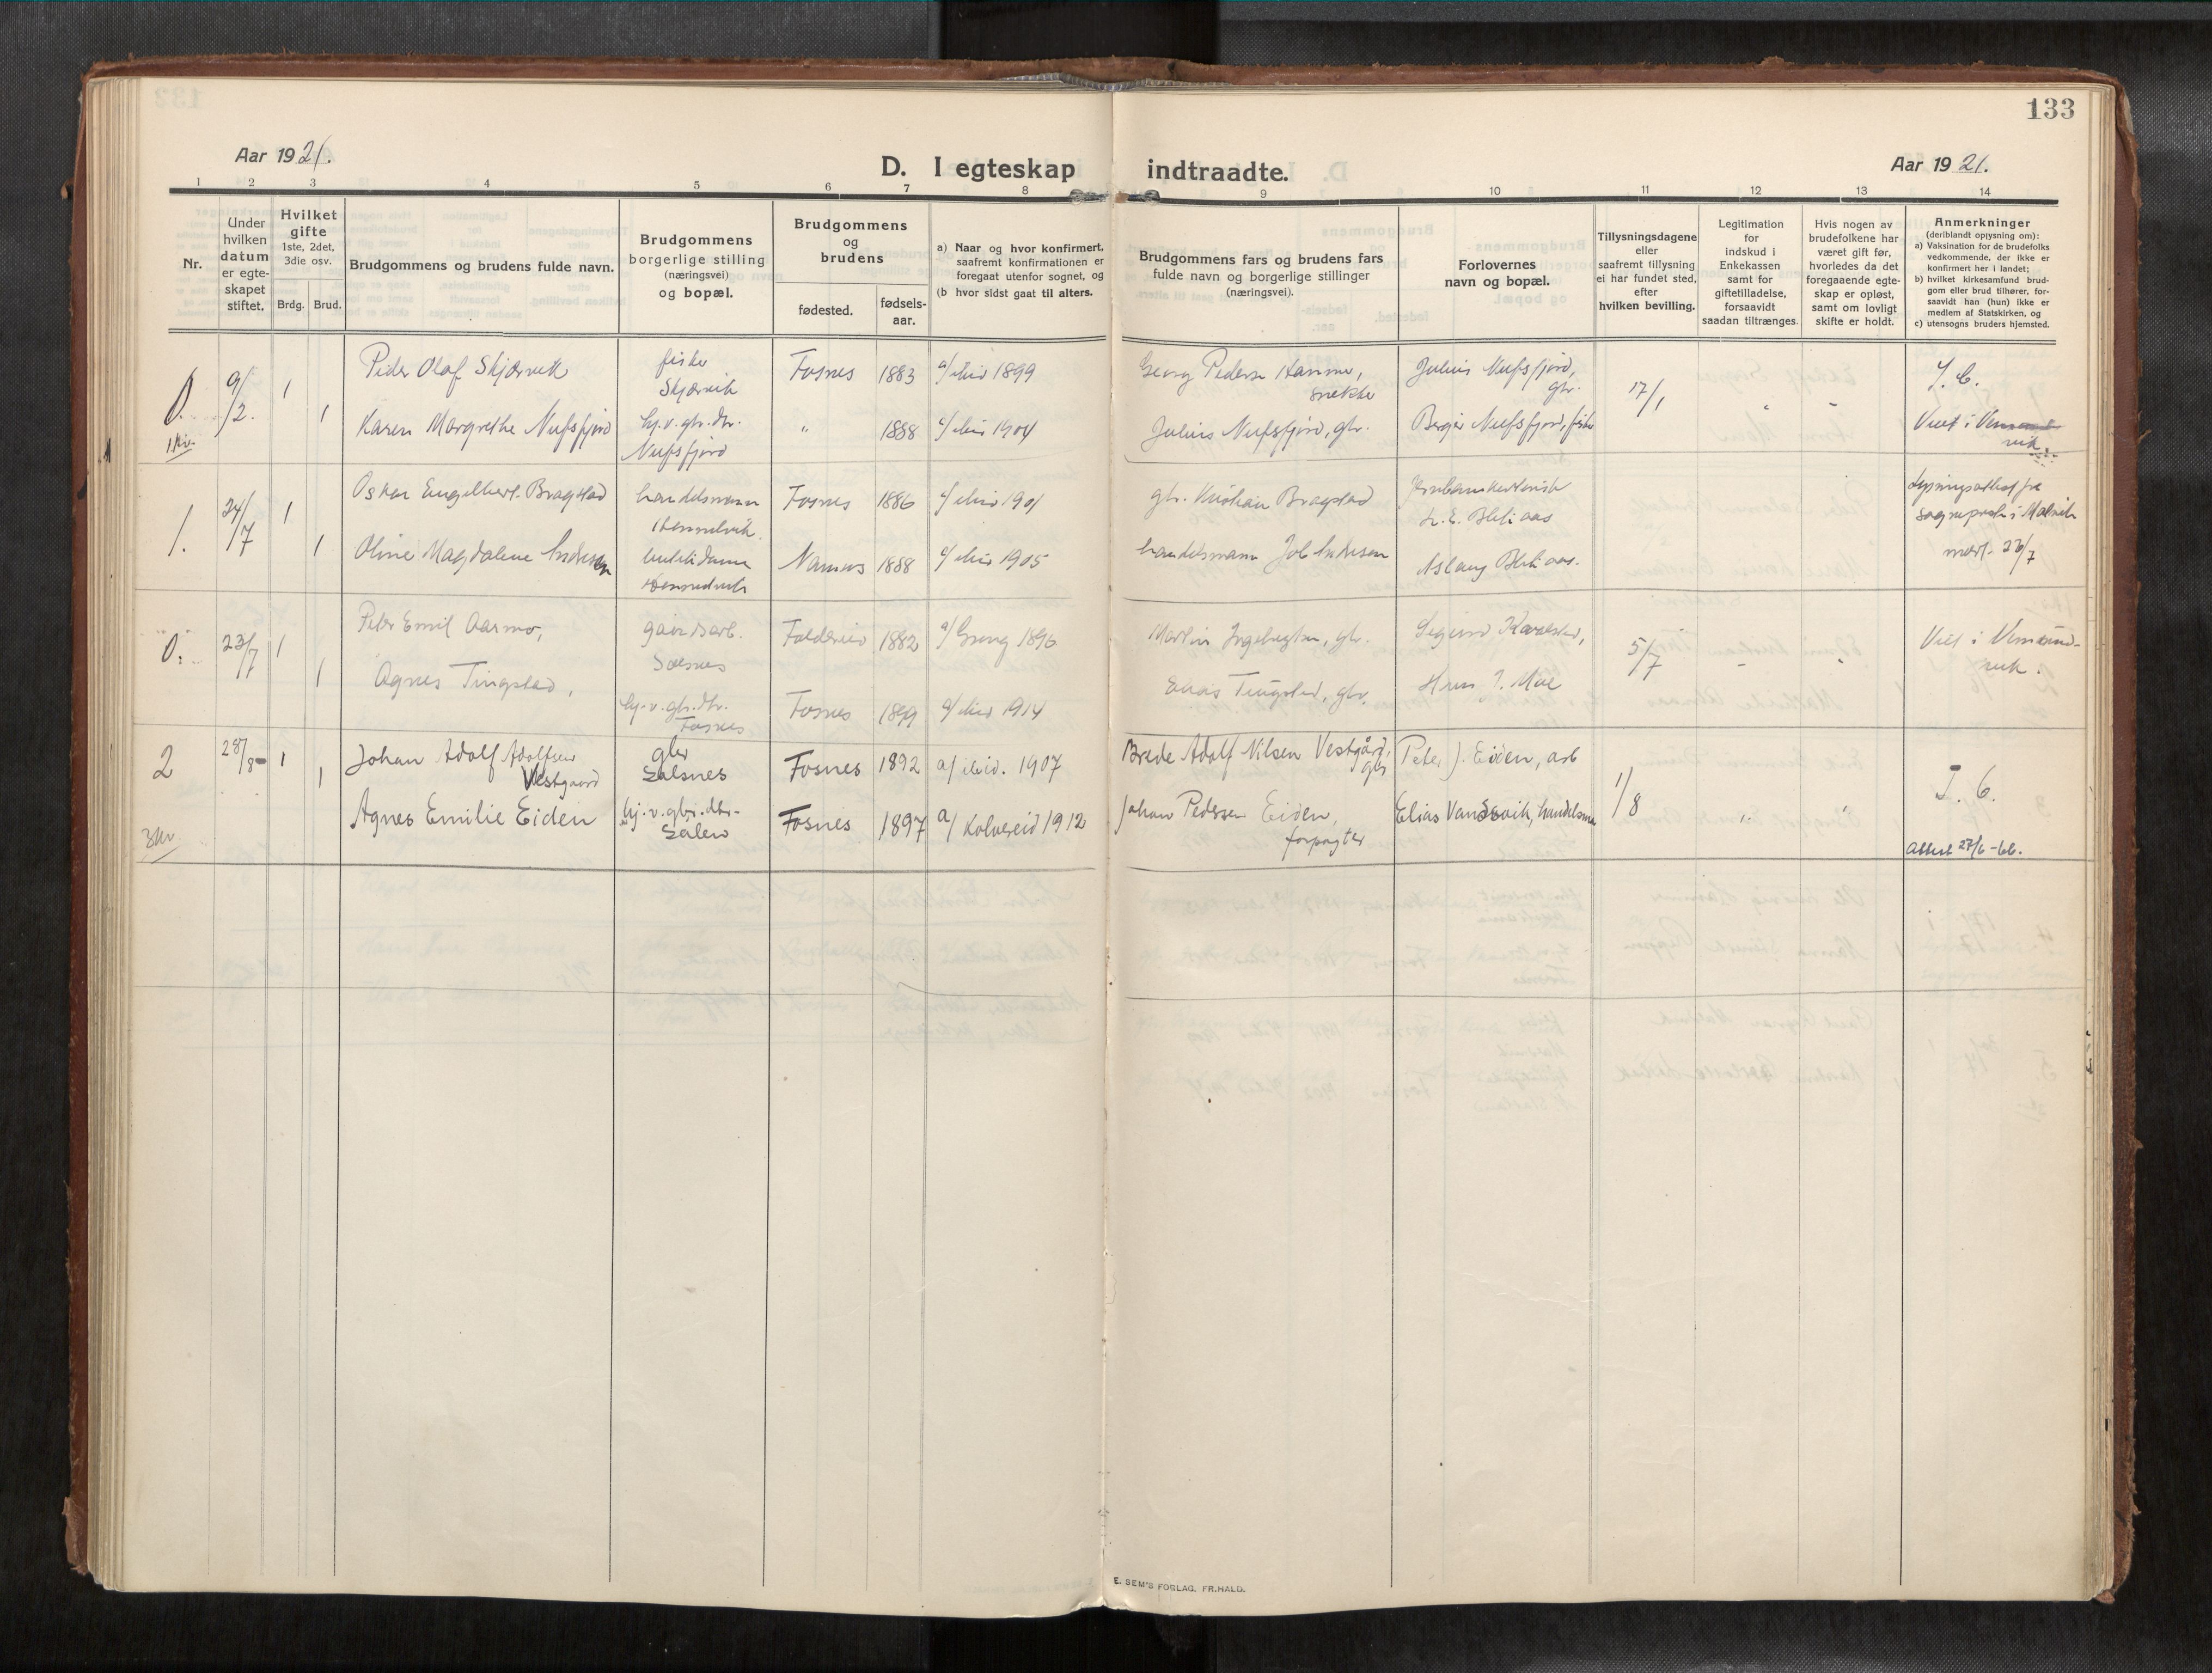 133
Aar 1921.
D. I egteskap indtraadte.
Aar 1921.
1 2 3 4 5 6 7 8 9 10 11 12 13 14
Nr.
Under
hvilken
datum
er egte-
skapet
stiftet.
Hvilket
gifte
1ste, 2det,
3die osv.
Brdg. Brud.
Brudgommens og brudens fulde navn.
Brudgommens
borgerlige stilling
(næringsvei)
og bopæl.
Brudgommens
og
brudens
fødested.
fødsels-
aar.
a) Naar og hvor konfirmert,
saafremt konfirmationen er
foregaat utenfor sognet, og
(b hvor sidst gaat til alters.
Brudgommens fars og brudens fars
fulde navn og borgerlige stillinger
(næringsvei).
Forlovernes
navn og bopæl.
Tillysningsdagene
eller
saafremt tillysning
ei har fundet sted,
efter
hvilken bevilling.
Legitimation
for
indskud i
Enkekassen
samt for
giftetilladelse,
forsaavidt
saadan tiltrænges.
Hvis nogen av
brudefolkene har
været gift før,
hvorledes da det
foregaaende egte-
skap er opløst,
samt om lovligt
skifte er holdt.
Anmerkninger
(deriblandt opysning om):
a) Vaksination for de brudefolks
vedkommende, der ikke er
konfirmert her i landet;
b) hvilket kirkesamfund brud-
gom eller brud tilhører, for-
saavidt han (hun) ikke er
medlem af Statskirken, og
c) utensogns bruders hjemsted.
0. 9/2. 1 Peder Olaf Skjærvik fisker Skjærvik Fosnes 1883 a/ ibid 1899 Georg Pedersen Hammer, snekker Julius Nufsfjord, gbr. 17/1
1 Karen Margrethe Nufsfjord hj.v. gbr. dtr. Nufsfjord " 1888 a/ ibid 1904 Julius Nufsfjord, gbr. Birger Nufsfjord, fisker
Viet i Vemundvik.
1. 24/7 1 Oskar Engelbert Bragstad handelsmann Fosnes 1886 a/ ibid 1901 gbr. Kristian Bragstad
1 Oline Magdalene Andersen Namsos 1888 a/ ibid 1905 handelsmann Job Andersen Aslaug
sogneprest i Malvik
0. 23/7 1 Peter Emil Aarmo, Salsnes Foldereid 1882 a/ Grong 1896 Martin Ingebrigtsen, gbr. 5/7 Viet i Vemund-
vik.
1 Agnes Tingstad, hj. v. gbr. dtr. Fosnes Fosnes 1899 a/ ibid 1914 Tingstad, gbr.
2 28/8 1 Johan Adolf Adolfsen Vestgaard gbr Salsnes Fosnes 1892 a/ ibid. 1907 Brede Adolf Nilsen Vestgård, gbr Peter J. Eiden, arb 1/8
1 Agnes Emilie Eiden hj. v. gbr. dtr. Salen Fosnes 1897 a/ Kolvereid 1912 Johan Pedersen Eiden, forpagter Elias Vandsvik, handelsma
Attest 27/6-66.
E. SEM'S FORLAG, FR.HALD.